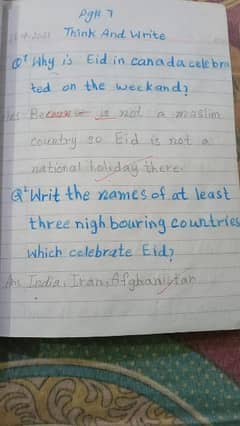 Pg# 7
Think And Write
Q¹ Why is Eid in canada celebra
ted on the weekand?
Ans Because is not a muslim
country so Eid is not a
national holiday there.
Q² Writ the names of at least
three nighbouring countries
which celebrate Eid?
Ans India, Iran, Afghanistan